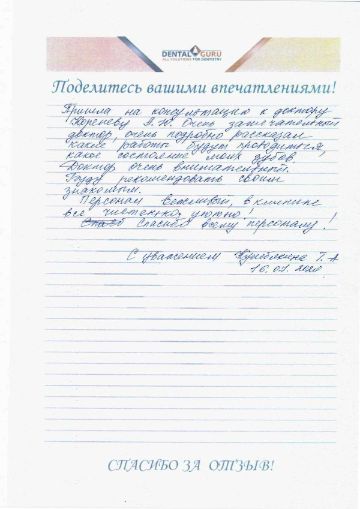 DENTAL GURU
ALL SOLUTIONS FOR DENTISTRY
Поделитесь вашими впечатлениями!
Пришла на консультацию к доктору
Кореневу А.Ю. Очень замечательный
доктор, очень подробно рассказал
какие работы будут проводиться,
какое состояние моих зубов.
Доктор очень внимательный.
Буду рекомендовать своим
знакомым.
Персонал вежливый, в клинике
все чистенько, уютно!
Спасибо всему персоналу!
С уважением Т. А
16.01.2020
СПАСИБО ЗА ОТЗЫВ!